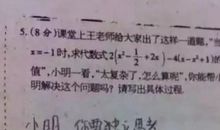 5.(8分)课堂上王老师给大家出了这样一道题,"当
x=-1时,求代数式2(x²-½+2x)-4(x-x²+1)的
值",小明一看,"太复杂了,怎么算呢",你能帮小
明解决这个问题吗? 请写出具体过程.
小明 你要独立思考